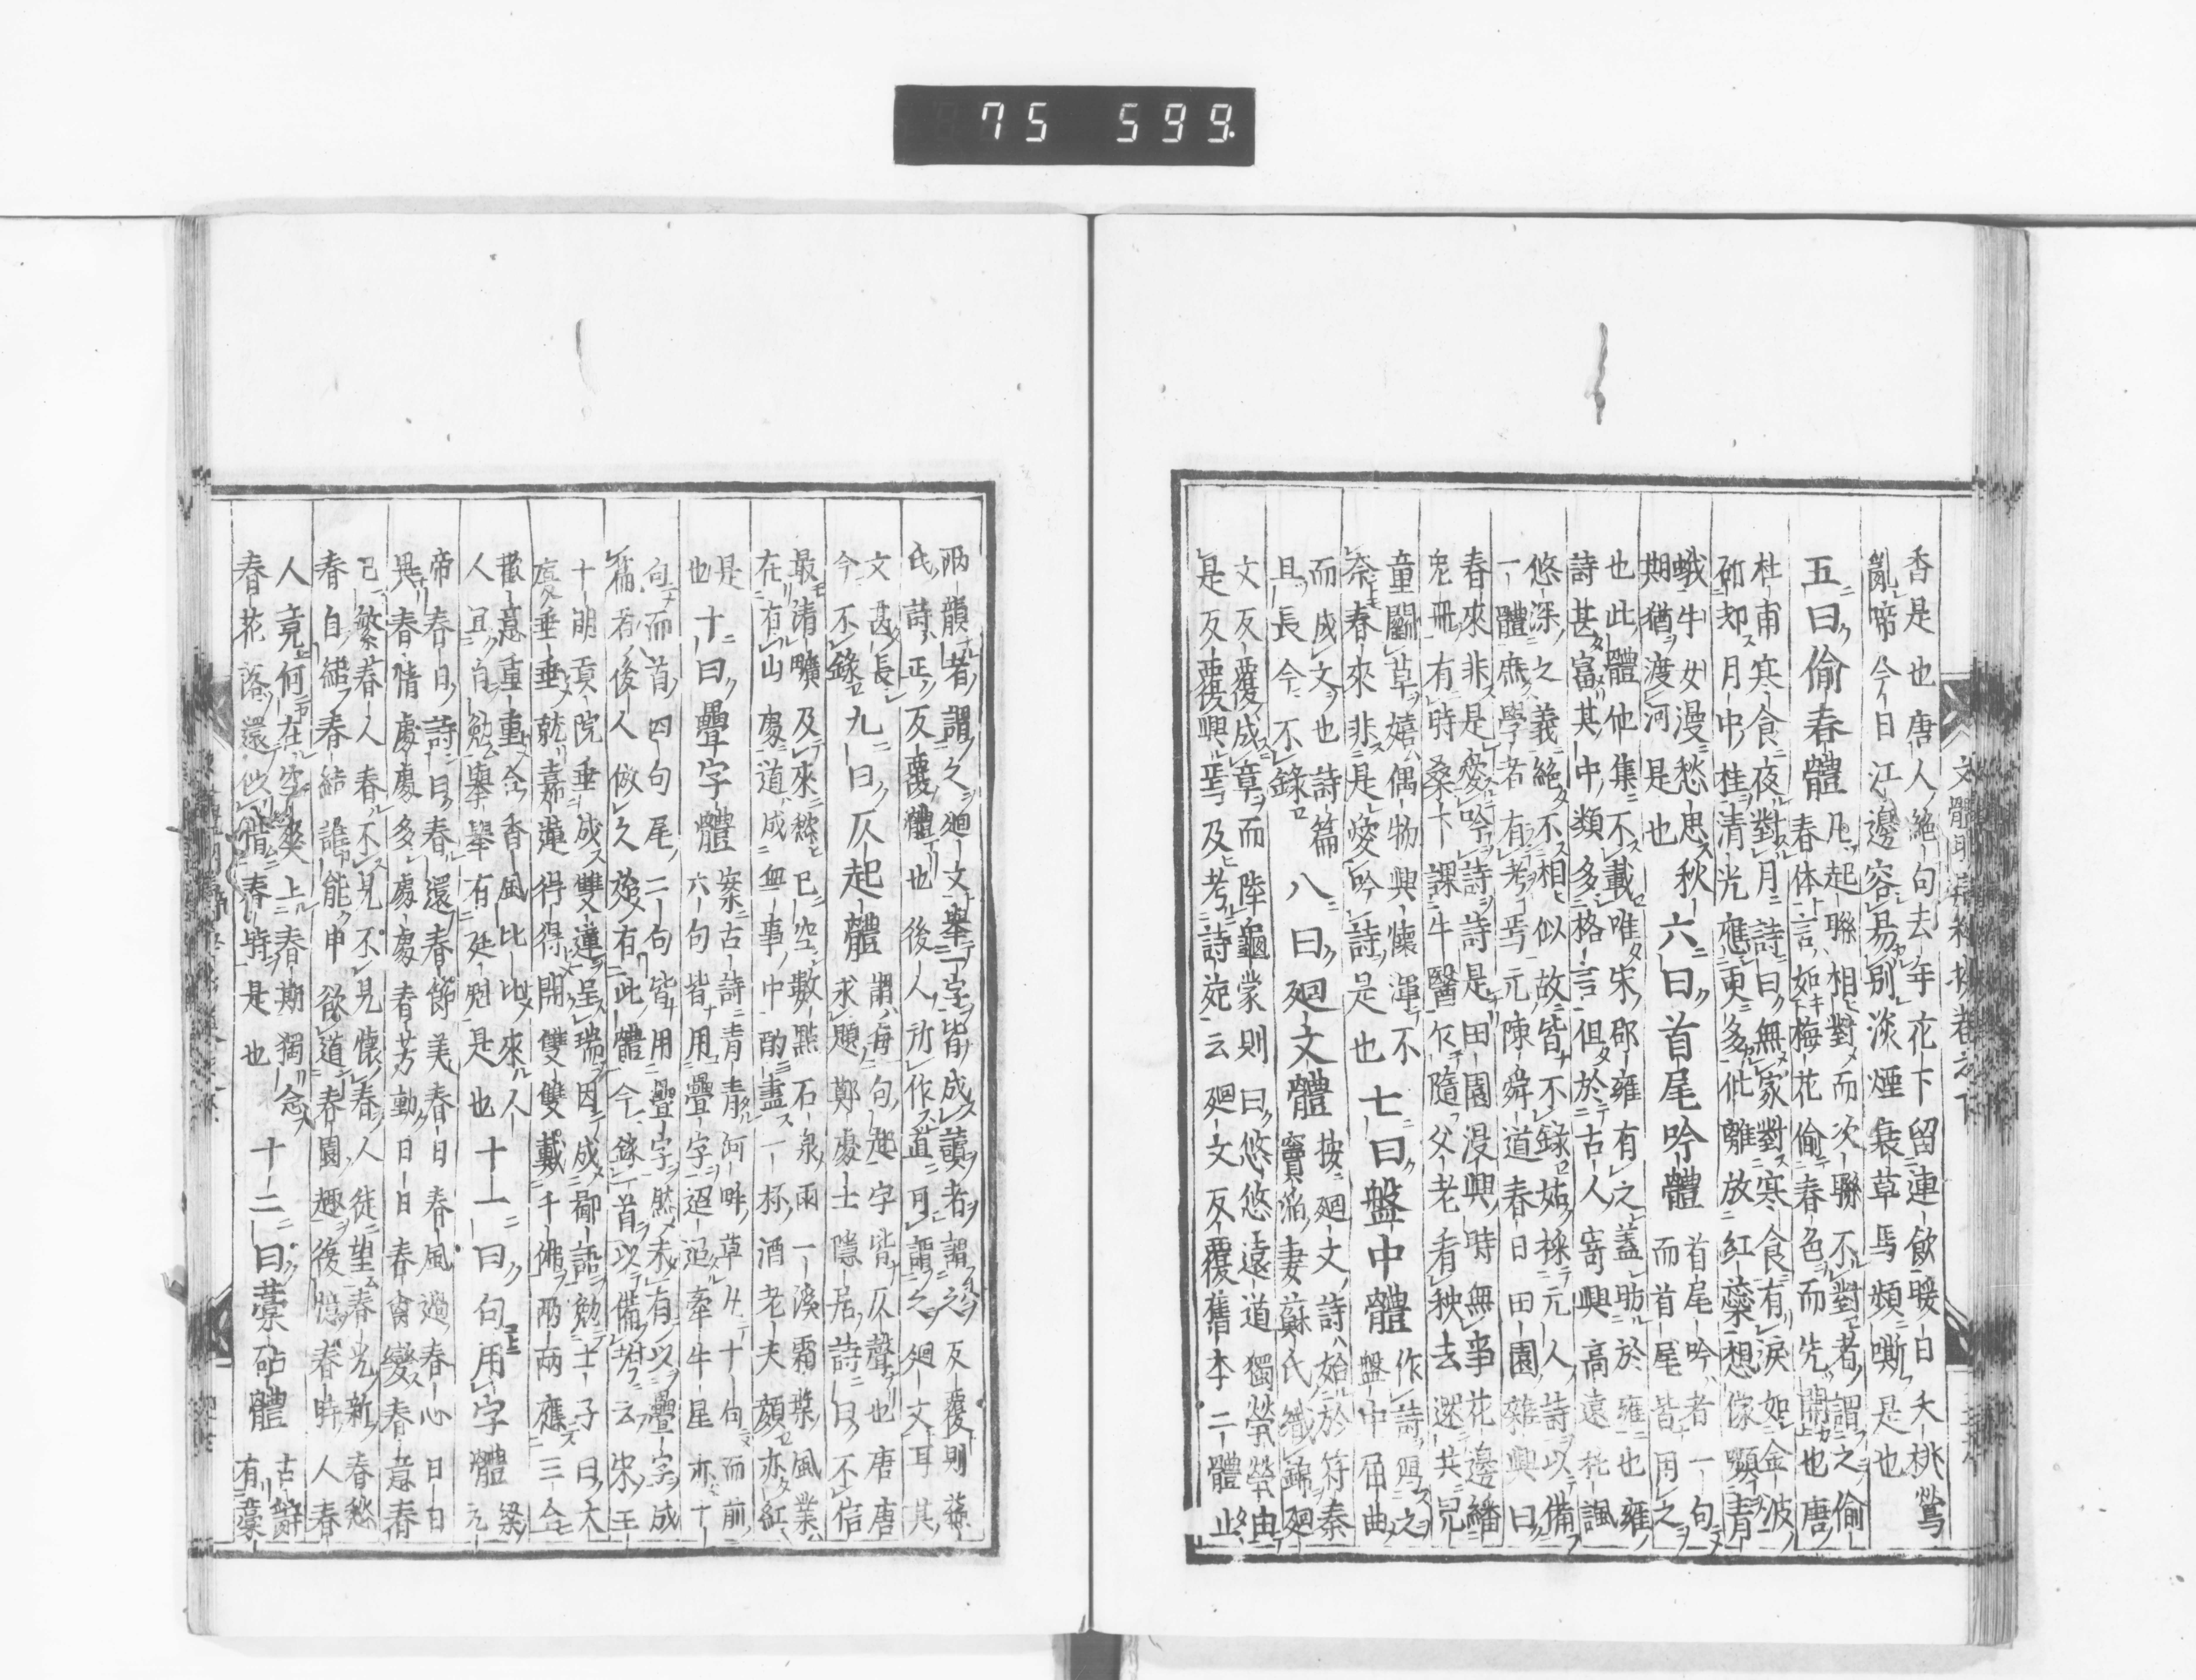 75 599.
香是也唐人絶句去年花下留連飲暖日夭桃鶯
亂啼今日江邊容易別淡煙衰草馬頻嘶是也
五曰偷春體
凡起聯相對而次聯不對者謂之偷
春体言如梅花偷春色而先開也唐
杜甫寒食夜對月詩曰無家對寒食有淚如金波
斫却月中桂清光應更多仳離放紅蘂想像顰青
蛾牛女漫愁思秋
期猶渡河是也
六曰首尾吟體
首尾吟者一句
而首尾皆用之
也此體他集不載唯宋邵雍有之蓋昉於雍也雍
詩甚富其中類多格言但於古人寄興高遠托諷
悠深之義絶不相似故皆不錄姑採元人詩以備
一體庶學者有考焉元陳舜道春日田園雜興曰
春來非是愛吟詩詩是田園漫興時無事花邊繙
兔冊有時桑下課牛醫仄隨父老看秧去還共兒
童鬭草嬉偶物興懷渾不
奈春來非是愛吟詩是也
七曰盤中體
作詩寫之
盤中屈曲
而成文也詩篇
且長今不錄
八曰廻文體
按廻文詩始於符秦
竇滔妻蘇氏織錦廻
文反覆成章而陸龜蒙則曰悠悠遠道獨煢煢由
是反覆興焉及考詩苑云廻文反覆舊本二體止
兩韻者謂之廻文擧一字皆成讀者謂之反覆則蘇
氏詩正反覆體也後人所作直可謂之廻文耳其
文甚長
今不錄
九曰仄起體
謂每句起字皆仄聲也唐唐
求題鄭處士隱居詩曰不信
最清曠及來愁已空數點石泉雨一溪霜葉風業
在有山處道成無事中酌盡一杯酒老夫顏亦紅
是
也
十曰疊字體
案古詩青青河畔草凡十句而前
六句皆用疊字迢迢牽牛星亦十
句而首四句尾二句皆用疊字然未有以疊字成
篇者後人倣之茲有此體今錄一首以備考云宋王
十朋貢院垂成雙蓮呈瑞因成鄙語勉士子曰大
廈垂垂就嘉蓮得得開雙雙戴千佛兩兩應三台
歡意重重合香風比比來人
人冝自勉擧擧有廷魁是也
十一曰句用字體
梁
元
帝春日詩曰春還春節美春日春風過春心日日
異春情處處多處處春芳動日日春禽變春意春
已繁春人春不見不見懷春人徒望春光新春愁
春自結春結誰能申欲道春園趣復憶春時人春
人竟何在空爽上春期獨念
春花落還似惜春時是也
十二曰藁砧體
古辭
有藁